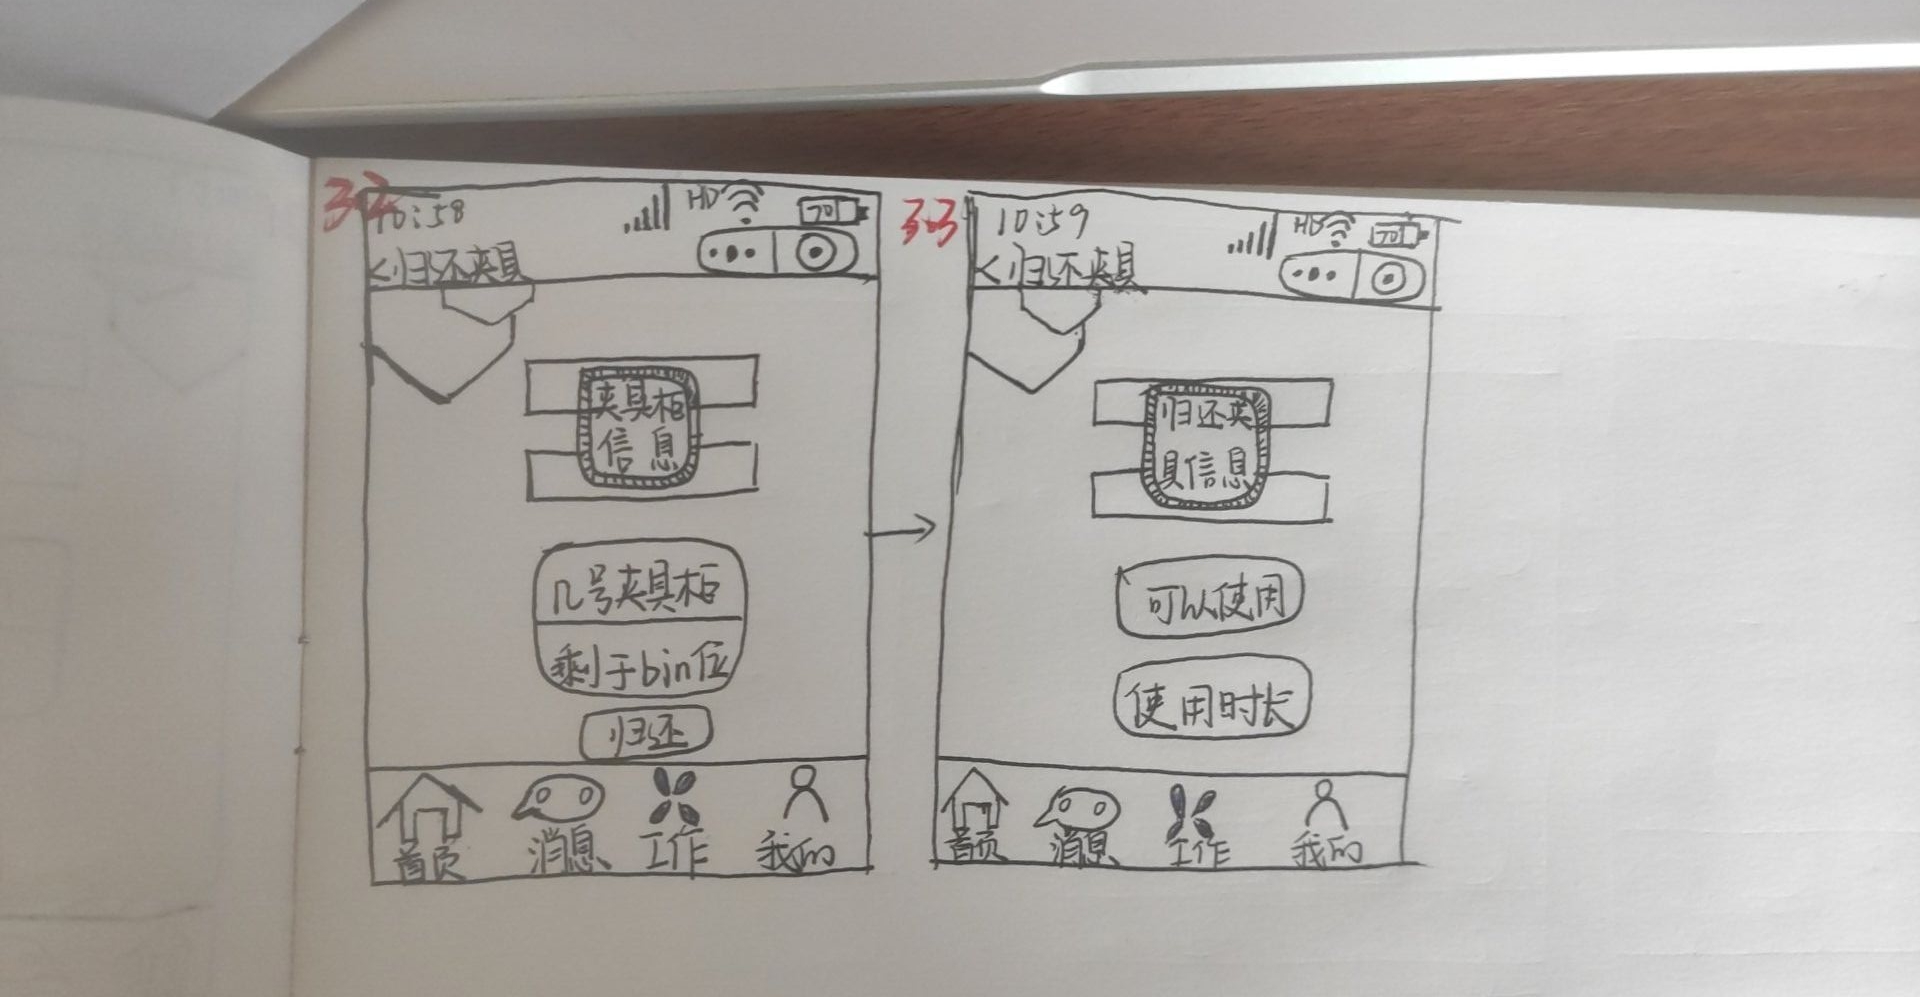 3.2
10:58
HD
70
<归还夹具
夹具柜
信息
几号夹具柜
剩于bin位
归还
首页
消息
工作
我的
3.3
10:59
HD
70
<归还夹具
归还夹
具信息
可以使用
使用时长
首页
消息
工作
我的